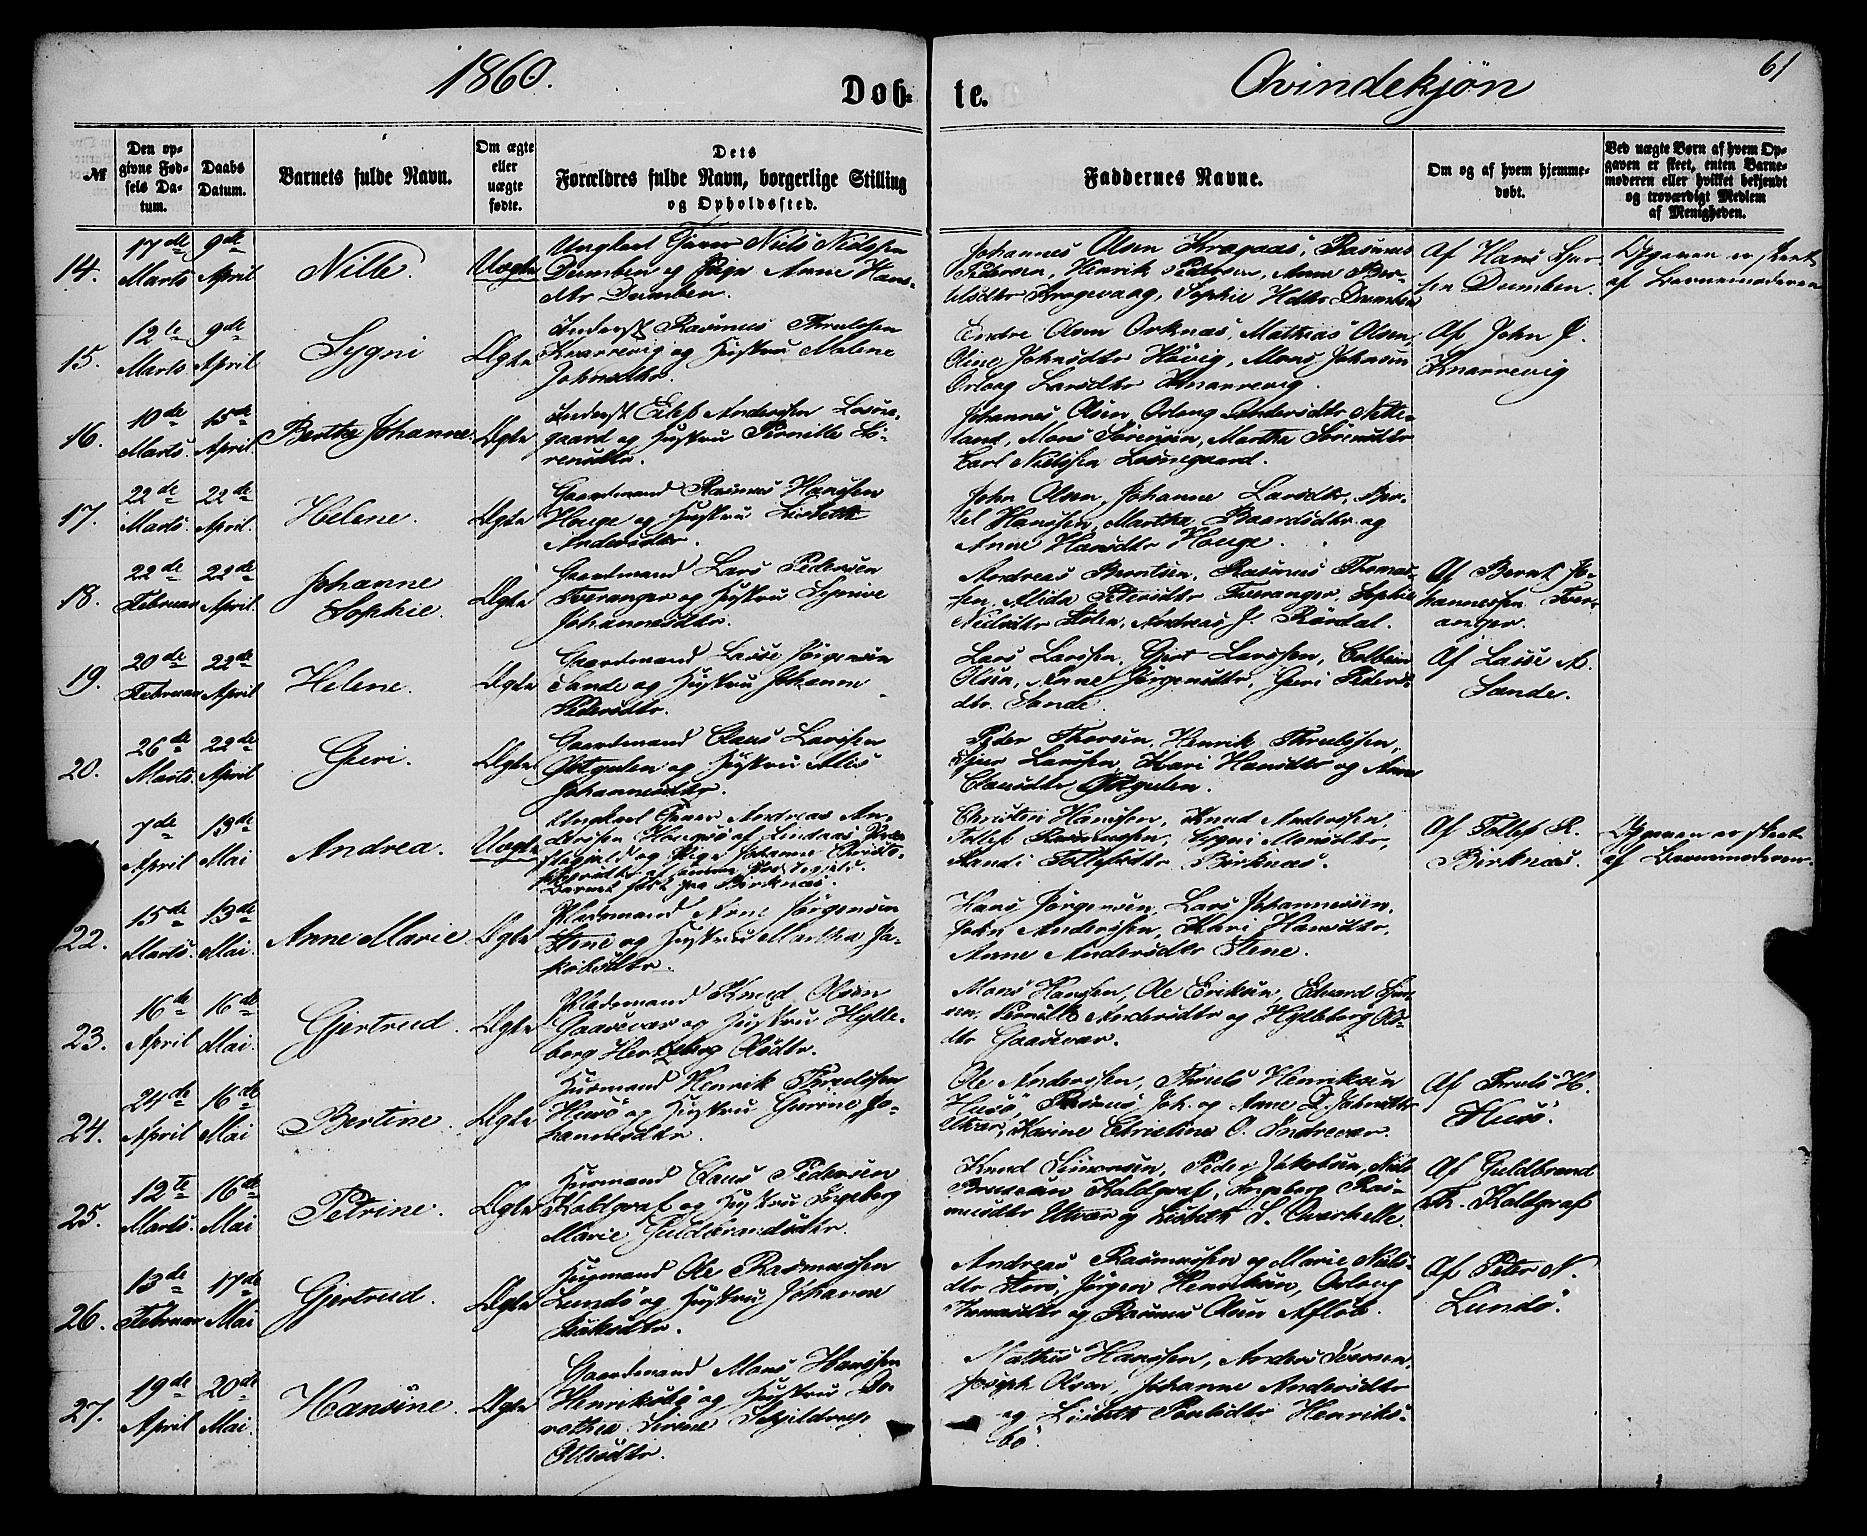 1860.
Døb-
te.
Qvindekjøn
61
№
Den op-
givne Fød-
sels Da-
tum.
Daabs
Datum.
Barnets fulde Navn.
Om ægte
eller
uægte
fødte.
Dets
Forældres fulde Navn, borgerlige Stilling
og Opholdssted.
Faddernes Navne.
Om og af hvem hjemme-
døbt.
Ved uægte Børn af hvem Op-
gaven er skeet, enten Barne-
moderen eller hvilket bekjendt
og troværdigt Medlem
af Menigheden.
14.
17de
Marts
9de
April
Nille.
Uægte
Ungkarl Niels Nielsen
Dumben og Pige Anne Hans-
dtr Dumben.
Johannes Olsen Kragaas, Rasmus
Pedersen, Henrik Pedersen, Anne Ber-
telsdtr Kragevaag, Sophie Hdtr Dumben
Af Hans
Dumben.
Opgaven er skeet
af Barnemoderen
15.
12te
Marts
9de
April
Sygni
Ægte
Inderst Rasmus Thrulssen
Knarrevig og Hustru Malene
Johnsdtr.
Endre Olsen Orknæs, Mathias Olsen,
Oline Johnsdtr Høvig, Mons Johnsen
Orlaug Larsdtr Knarrevig.
Af John J.
Knarrevig
16.
10de
Marts.
15de
April.
Berthe Johanne.
Ægte
Inderst Ellef Anderssen Losne-
gaard og Hustru Pernille Sö-
rensdtr.
Johannes Olsen, Orlaug Andersdtr Nette-
land, Mons Sørensen, Martha Sørensdtr
Carl Nielssen Losnegaard.
17.
22de
Marts.
22de
April.
Helene.
Ægte
Gaardmand Rasmus Hanssen
Houge og Hustru Lisbeth
Andersdtr.
John Olsen, Johanne Larsdtr, Ber-
tel Hanssen, Martha Baardsdtr og
Anne Hansdtr Houge.
18.
22de
Februar
22de
April.
Johanne
Sophie.
Ægte
Gaardmand Lars Pedersen
Tveranger og Hustru Synnive
Johannesdtr.
Andreas Berntsen, Rasmus Thomas-
sen, Alida Petersdtr Tveranger, Sophie
Nielsdtr Stolen, Andreas J. Rørdal.
Af Bernt Jo-
hannessen Tver-
anger.
19.
20de
Februar
22de
April
Helene.
Ægte
Gaardmand Lasse Jørgensen
Sande og Hustru Johanne
Pedersdtr.
Lars Larssen, Gjert Larssen, Colbein
Olsen, Anne Jørgensdtr, Geri Peders-
dtr Sande.
Af Lasse A.
Sande.
20.
26de
Marts
22de
April
Geri.
Ægte
Gaardmand Claus Larssen
Østgulen og Hustru Alis
Johannesdtr.
Peder Thorsen, Henrik Thrulssen,
Larssen, Kari Hansdtr og Anne
Clausdtr Østgulen.
7de
April
13de
Mai
Andrea.
Uægte
Ungkarl Andreas An-
derssen af Lindaas Præ-
stegjeld og Pige Johanne Christo-
phersdtr af samme Præstegjeld.
Barnet født paa Birknæs.
Christen Hanssen, Knud Anderssen,
Tollef Rasmussen, Sygni Monsdtr,
Randi Tollefsdtr Birknæs.
Af Tollef R.
Birknæs.
Opgaven er skeet
af Barnemoderen.
22.
15de
Marts.
13de
Mai.
Anne Marie
Ægte
Pladsmand Arne Jørgensen
Stene og Hustru Martha Ja-
kobsdtr.
Hans Jørgensen, Lars Johannessen,
John Anderssen, Kari Hansdtr,
Anne Andersdtr Stene.
23.
16de
April
16de
Mai.
Gjertrud.
Ægte
Pladsmand Knud Olsen
Gaasevær og Hustru Hylle-
borg Herborg Olsdtr.
Mons Hanssen, Ole Eriksen, Edvard
sen, Pernille Andersdtr og Hylleborg Ols-
dtr Gaasevær.
24.
24de
April
16de
Mai
Bertine.
Ægte
Husmand Henrik Thrulssen
Husø og Hustru Jo-
hannesdtr.
Ole Anderssen, Thruls Henriksen
Husø, Rasmus Joh. og Anne D. Johnsdtr
Utvær, Karine Christine O. Indrevær.
Af Thruls H.
Husø.
25.
12te
Marts.
16de
Mai
Petrine.
Ægte
Husmand Claus Pedersen
Koldgraf og Hustru Ingeborg
Marie Guldbrandsdtr.
Knud Simonsen, Peder Jakobsen, Niels
Koldgraf, Ingeborg Ras-
musdtr Utvær og Lisbeth S. Qværhelle.
Af Guldbrand
Koldgraf
26.
13de
Februar
17de
Mai
Gjertrud.
Ægte
Husmand Ole Rasmussen
Lundø og Hustru Johanne
Isaksdtr.
Andreas Rasmussen og Marie Niels-
dtr Jørgen Henriksen, Orlaug
Ivarsdtr og Rasmus Olsen
Af Peter N.
Lundø.
27.
19de
April
20de
Mai.
Hansine.
Ægte
Gaardmand Mons Hanssen
Henriksbø og Hustru Do-
rothea
Ottisdtr.
Mathis Hanssen, Anders Iversen,
Joseph Olsen, Johanne Andersdtr
og Lisbeth Poulsdtr Henriks-
bø.